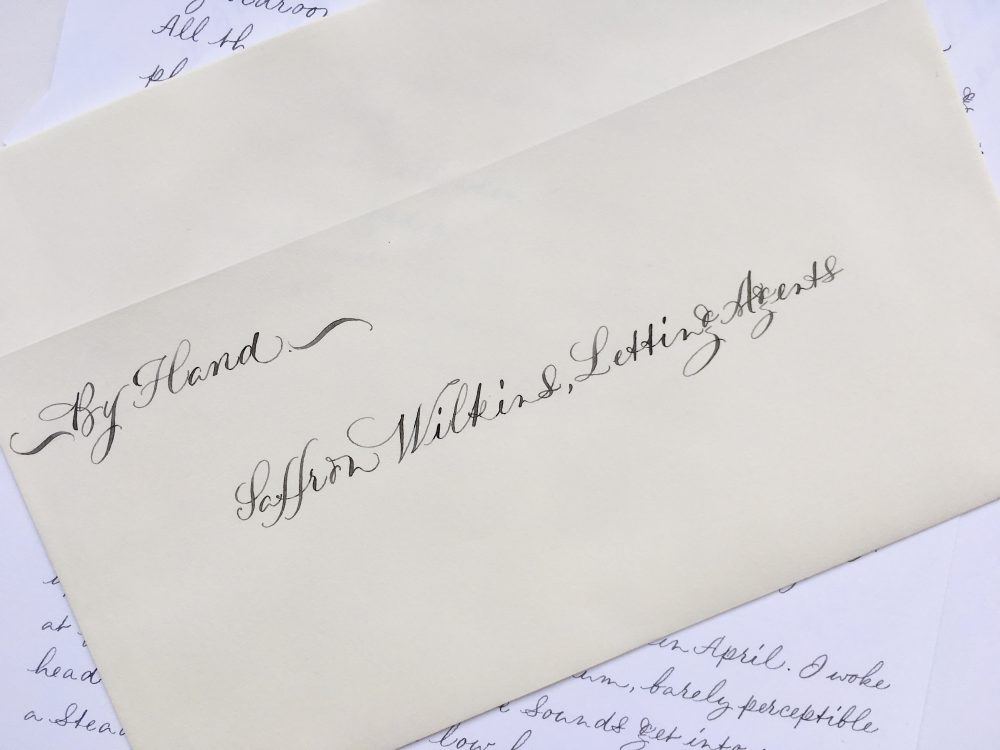 All th
By Hand.
Saffron Wilkins, Letting Agents
at
head
in April. I woke
barely perceptible
a Stea
sounds get into
low